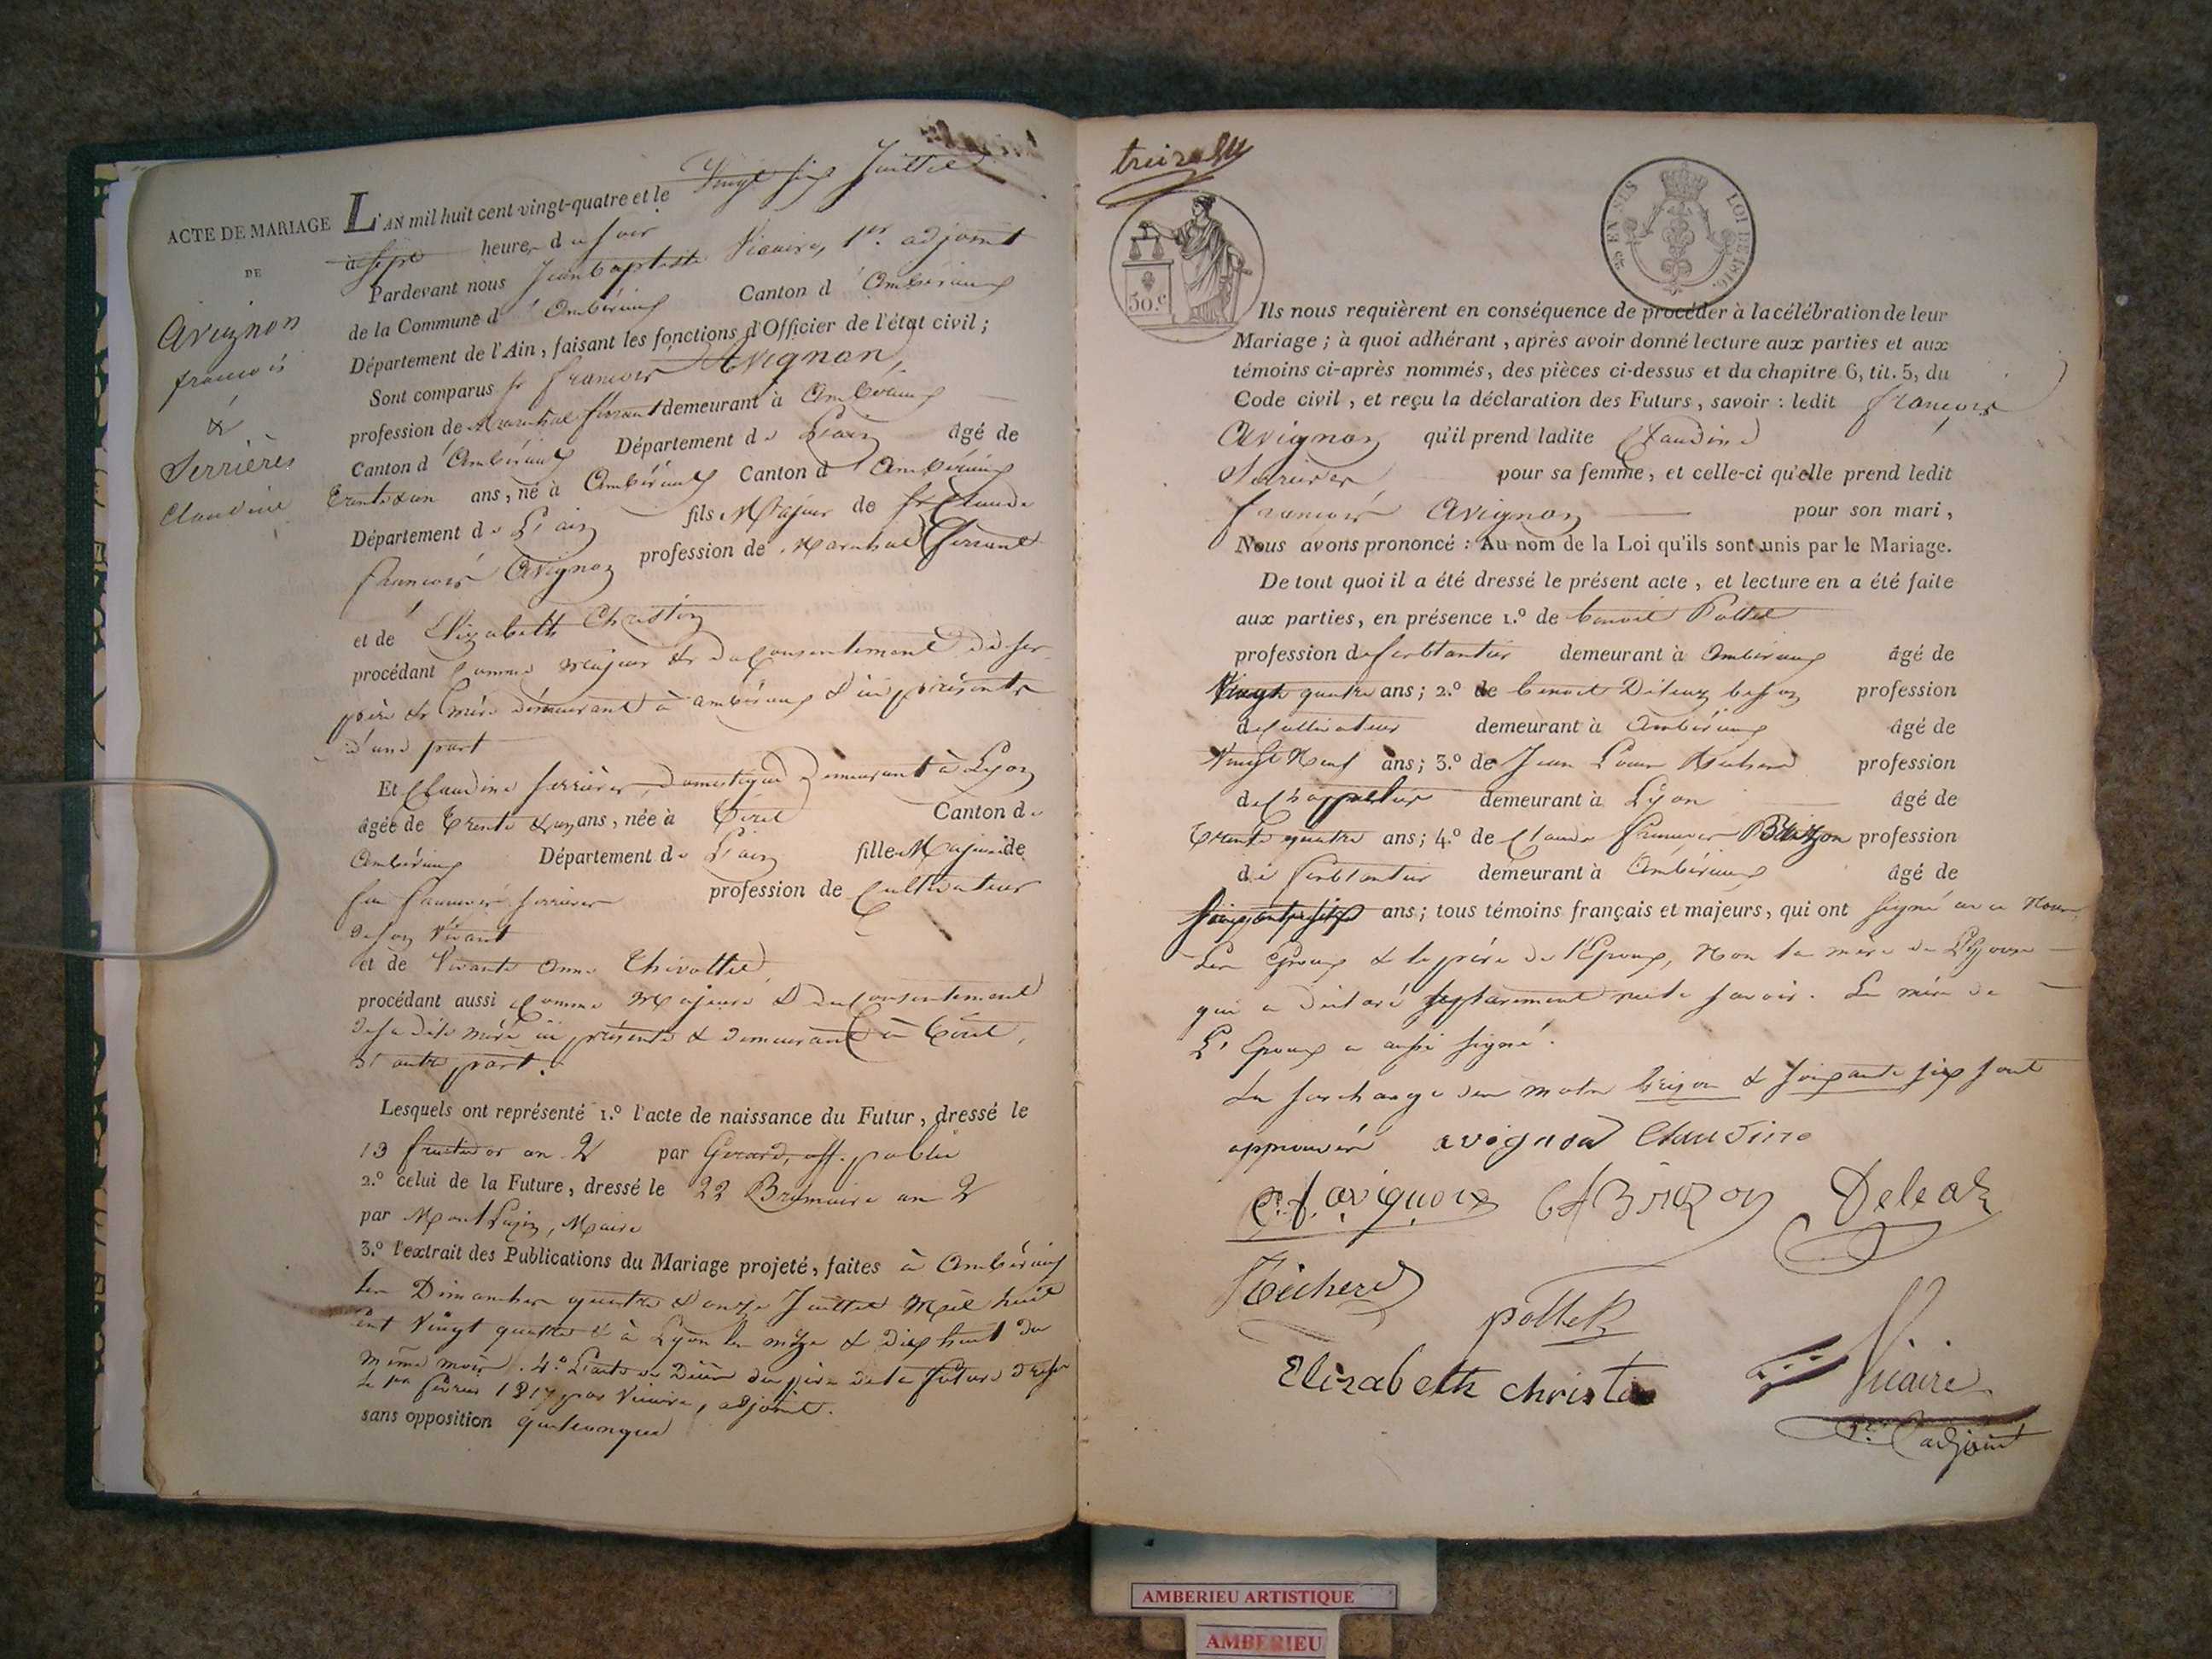 ACTE DE MARIAGE
DE
Avignon
françois
&
Serrières
Claudine
L'AN mil huit cent vingt-quatre et le Vingt six Juillet
à sept heures du soir
Pardevant nous Jean baptiste Vicaire, 1er. adjoint
de la Commune d'Ambérieux Canton d'Ambérieux
Département de l'Ain, faisant les fonctions d'Officier de l'état civil;
Sont comparus sr françois Avignon,
profession de Maréchal ferrant demeurant à Ambérieux
Canton d'Ambérieux Département de L'ain âgé de
trente & un ans, né à Ambérieux Canton d'Ambérieux
Département de L'ain fils Majeur de sr Claude
françois Avignon profession de Maréchal ferrant
et de Elizabeth Christin
procédant comme majeur & du consentement de ses
père & mère demeurant à ambérieux & ici présents
d'une part
Et Claudine serrières, domestique demeurant à Lyon
âgée de trente & un ans, née à Tiret Canton d.
Ambérieux Département de L'ain fille Majeure de
feu françois serrières profession de Cultivateur
de son vivant
et de Vivante Anne Chivallié
procédant aussi Comme Majeure & du Consentement
de sa dite mère ici présente & demeurant à tiret,
d'autre part.
Lesquels ont représenté 1.º l'acte de naissance du Futur, dressé le
13 fructidor an 2 par Girard, off. public
2.º celui de la Future, dressé le 22 Brumaire an 2
par Maire
3.º l'extrait des Publications du Mariage projeté, faites à Ambérieux
les Dimanches quatre & onze Juillet Mil huit
cent Vingt quatre & à Lyon les onze & dix huit du
même mois. 4.º L'acte de Décès du père de la future dressé
le 1er février 1817 par Vicaire, adjoint.
sans opposition quelconque
50.c
LOI DE 1816.
Ils nous requièrent en conséquence de procéder à la célébration de leur
Mariage; à quoi adhérant, après avoir donné lecture aux parties et aux
témoins ci-après nommés, des pièces ci-dessus et du chapitre 6, tit. 5, du
Code civil, et reçu la déclaration des Futurs, savoir : ledit françois
Avignon qu'il prend ladite Claudine
Serrières pour sa femme, et celle-ci qu'elle prend ledit
françois Avignon pour son mari,
Nous avons prononcé : Au nom de la Loi qu'ils sont unis par le Mariage.
De tout quoi il a été dressé le présent acte, et lecture en a été faite
aux parties, en présence 1.º de benoit Pollet
profession de ferblantier demeurant à Ambérieux âgé de
Vingt quatre ans; 2.º de benoit Deléaz besson profession
de cultivateur demeurant à Ambérieux âgé de
Vingt Neuf ans; 3.º de Jean Louis Réchend profession
de chappelier demeurant à Lyon âgé de
trente quatre ans; 4.º de Claude françois Brizon profession
de ferblantier demeurant à Ambérieux âgé de
soixante six ans; tous témoins français et majeurs, qui ont signé avec Nous,
Les époux & le père de l'Epoux, Non la mère de L'Epouse
qui a déclaré séparément ne le savoir. La mère de
L'Epoux a aussi signé.
La surcharge des mots brizon & soixante six sont
approuvés avignon Claudine
C. f. avignon C f Brizon Deleaz
Réchend
pollet
Elizabeth christin
Vicaire
1er. adjoint
AMBERIEU ARTISTIQUE
AMBERIEU